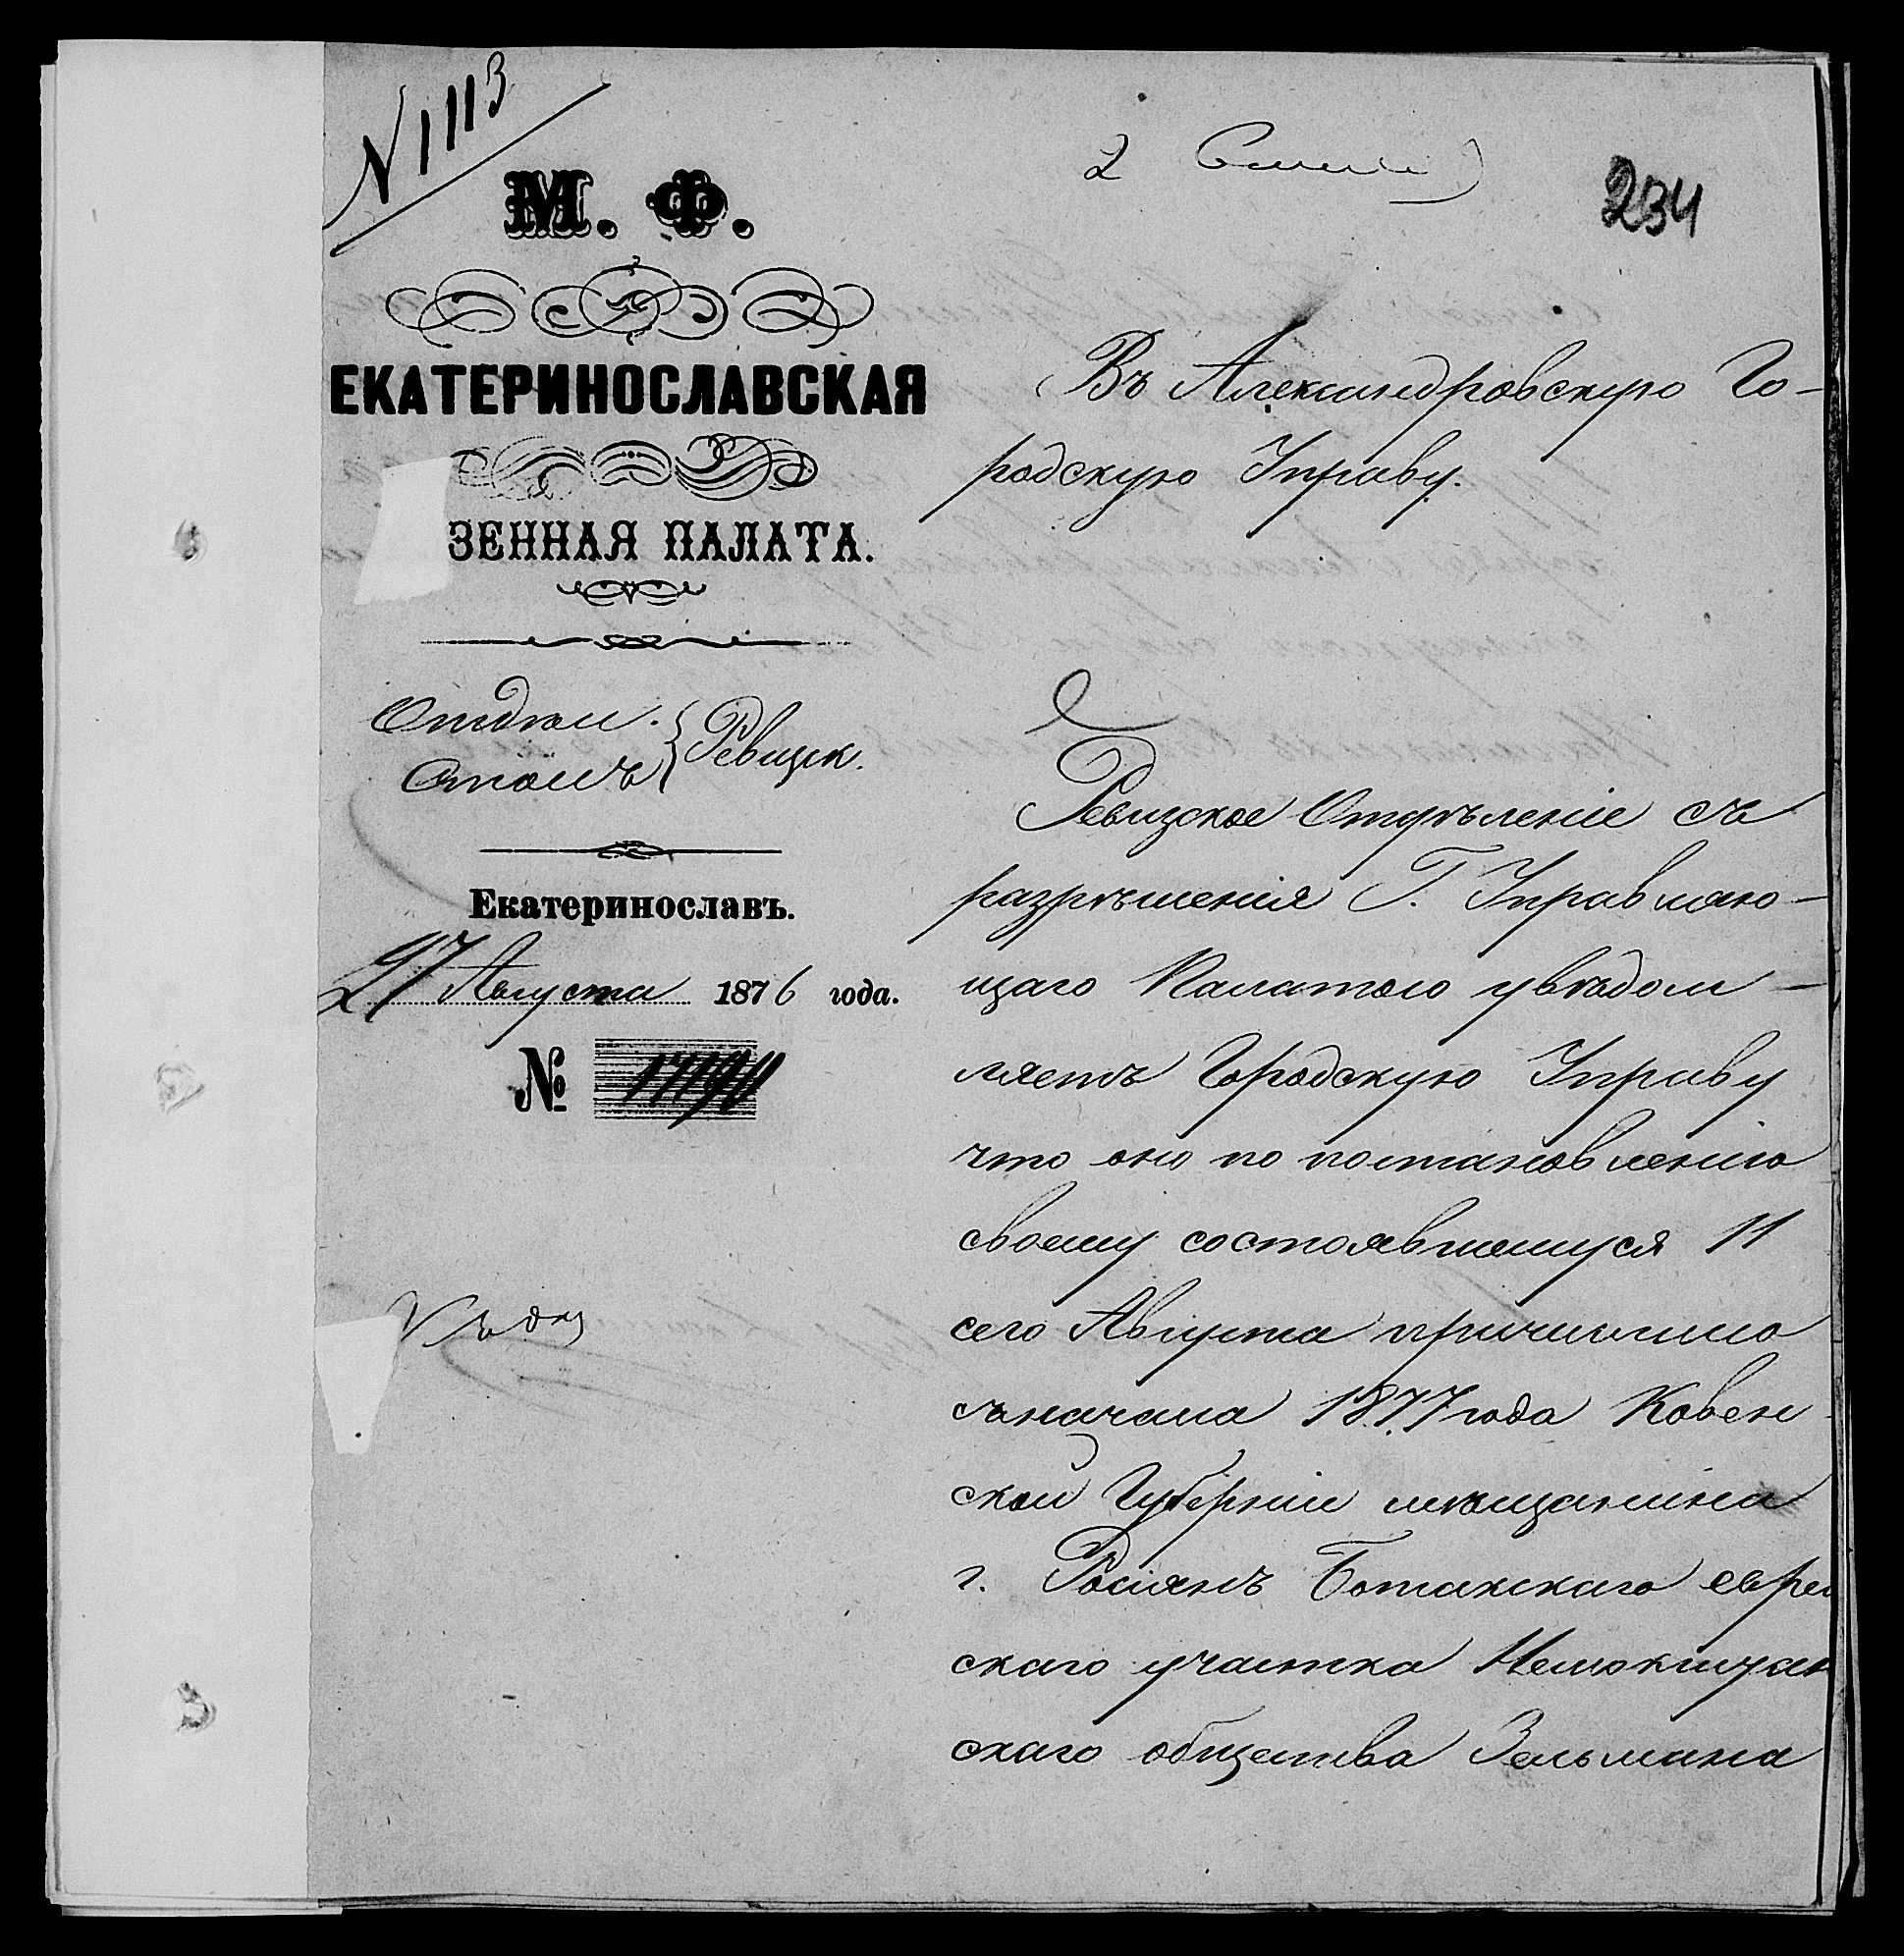 N 1113
М. Ф.
ЕКАТЕРИНОСЛАВСКАЯ
ЗЕННАЯ ПАЛАТА.
Отдѣл.
Столъ
Ревизск.
Екатеринославъ.
27 Августа 1876 года.
№
2
234
Въ Александровскую Го-
родскую Управу.
Ревизское Отдѣленіе съ
разрѣшенія Г. Управляю-
щаго Палатою увѣдом-
ляетъ Городскую Управу
что оно по постановленію
своему состоявшемуся 11
сего Августа причислило
съ начала 1877 года Ковен
ской Губерніи мѣщанина
г. Росіянъ Ботакскаго еврей
скаго участка Немокштан
скаго общества Зельмана